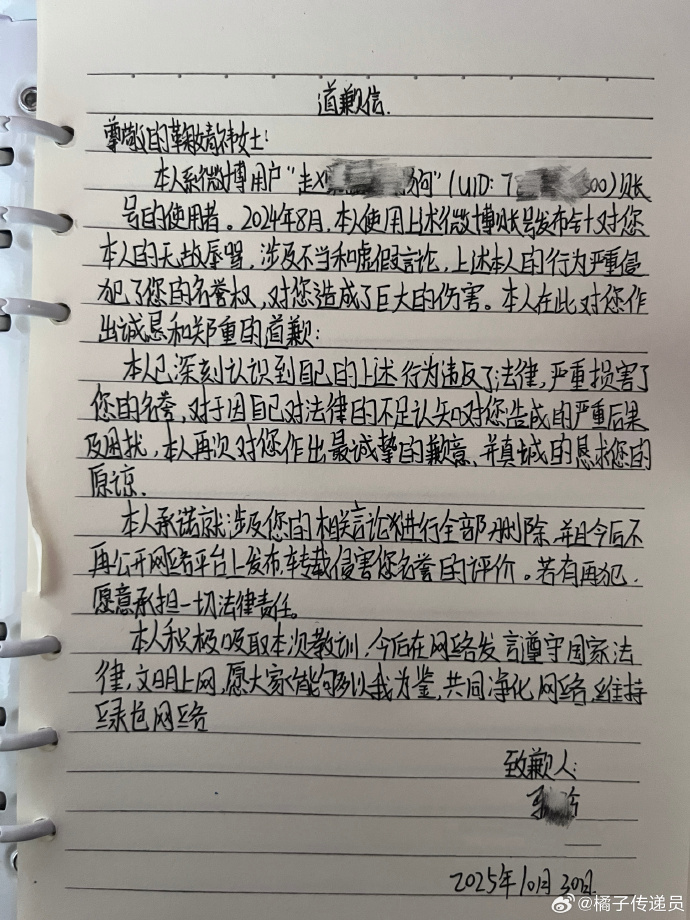 道歉信.
尊敬的鞠婧祎女士:
本人系微博用户“赵 狗”(UID: 7 500)账
号的使用者。2024年8月,本人使用上述微博账号发布针对您
本人的无故辱骂,涉及不当和虚假言论,上述本人的行为严重侵
犯了您的名誉权,对您造成了巨大的伤害。本人在此对您作
出诚恳和郑重的道歉:
本人已深刻认识到自己的上述行为违反了法律,严重损害了
您的名誉,对于因自己对法律的不足认知对您造成的严重后果
及困扰,本人再次对您作出最诚挚的歉意、并真诚的恳求您的
原谅.
本人承诺就涉及您的相关言论进行全部删除,并且今后不
再公开网络平台上发布、转载侵害您名誉的评价。若有再犯,
愿意承担一切法律责任。
本人积极吸取本次教训,今后在网络发言遵守国家法
律,文明上网,愿大家能够以我为鉴,共同净化网络,维持
绿色网络
致歉人:
2025年10月30日.
@橘子传递员